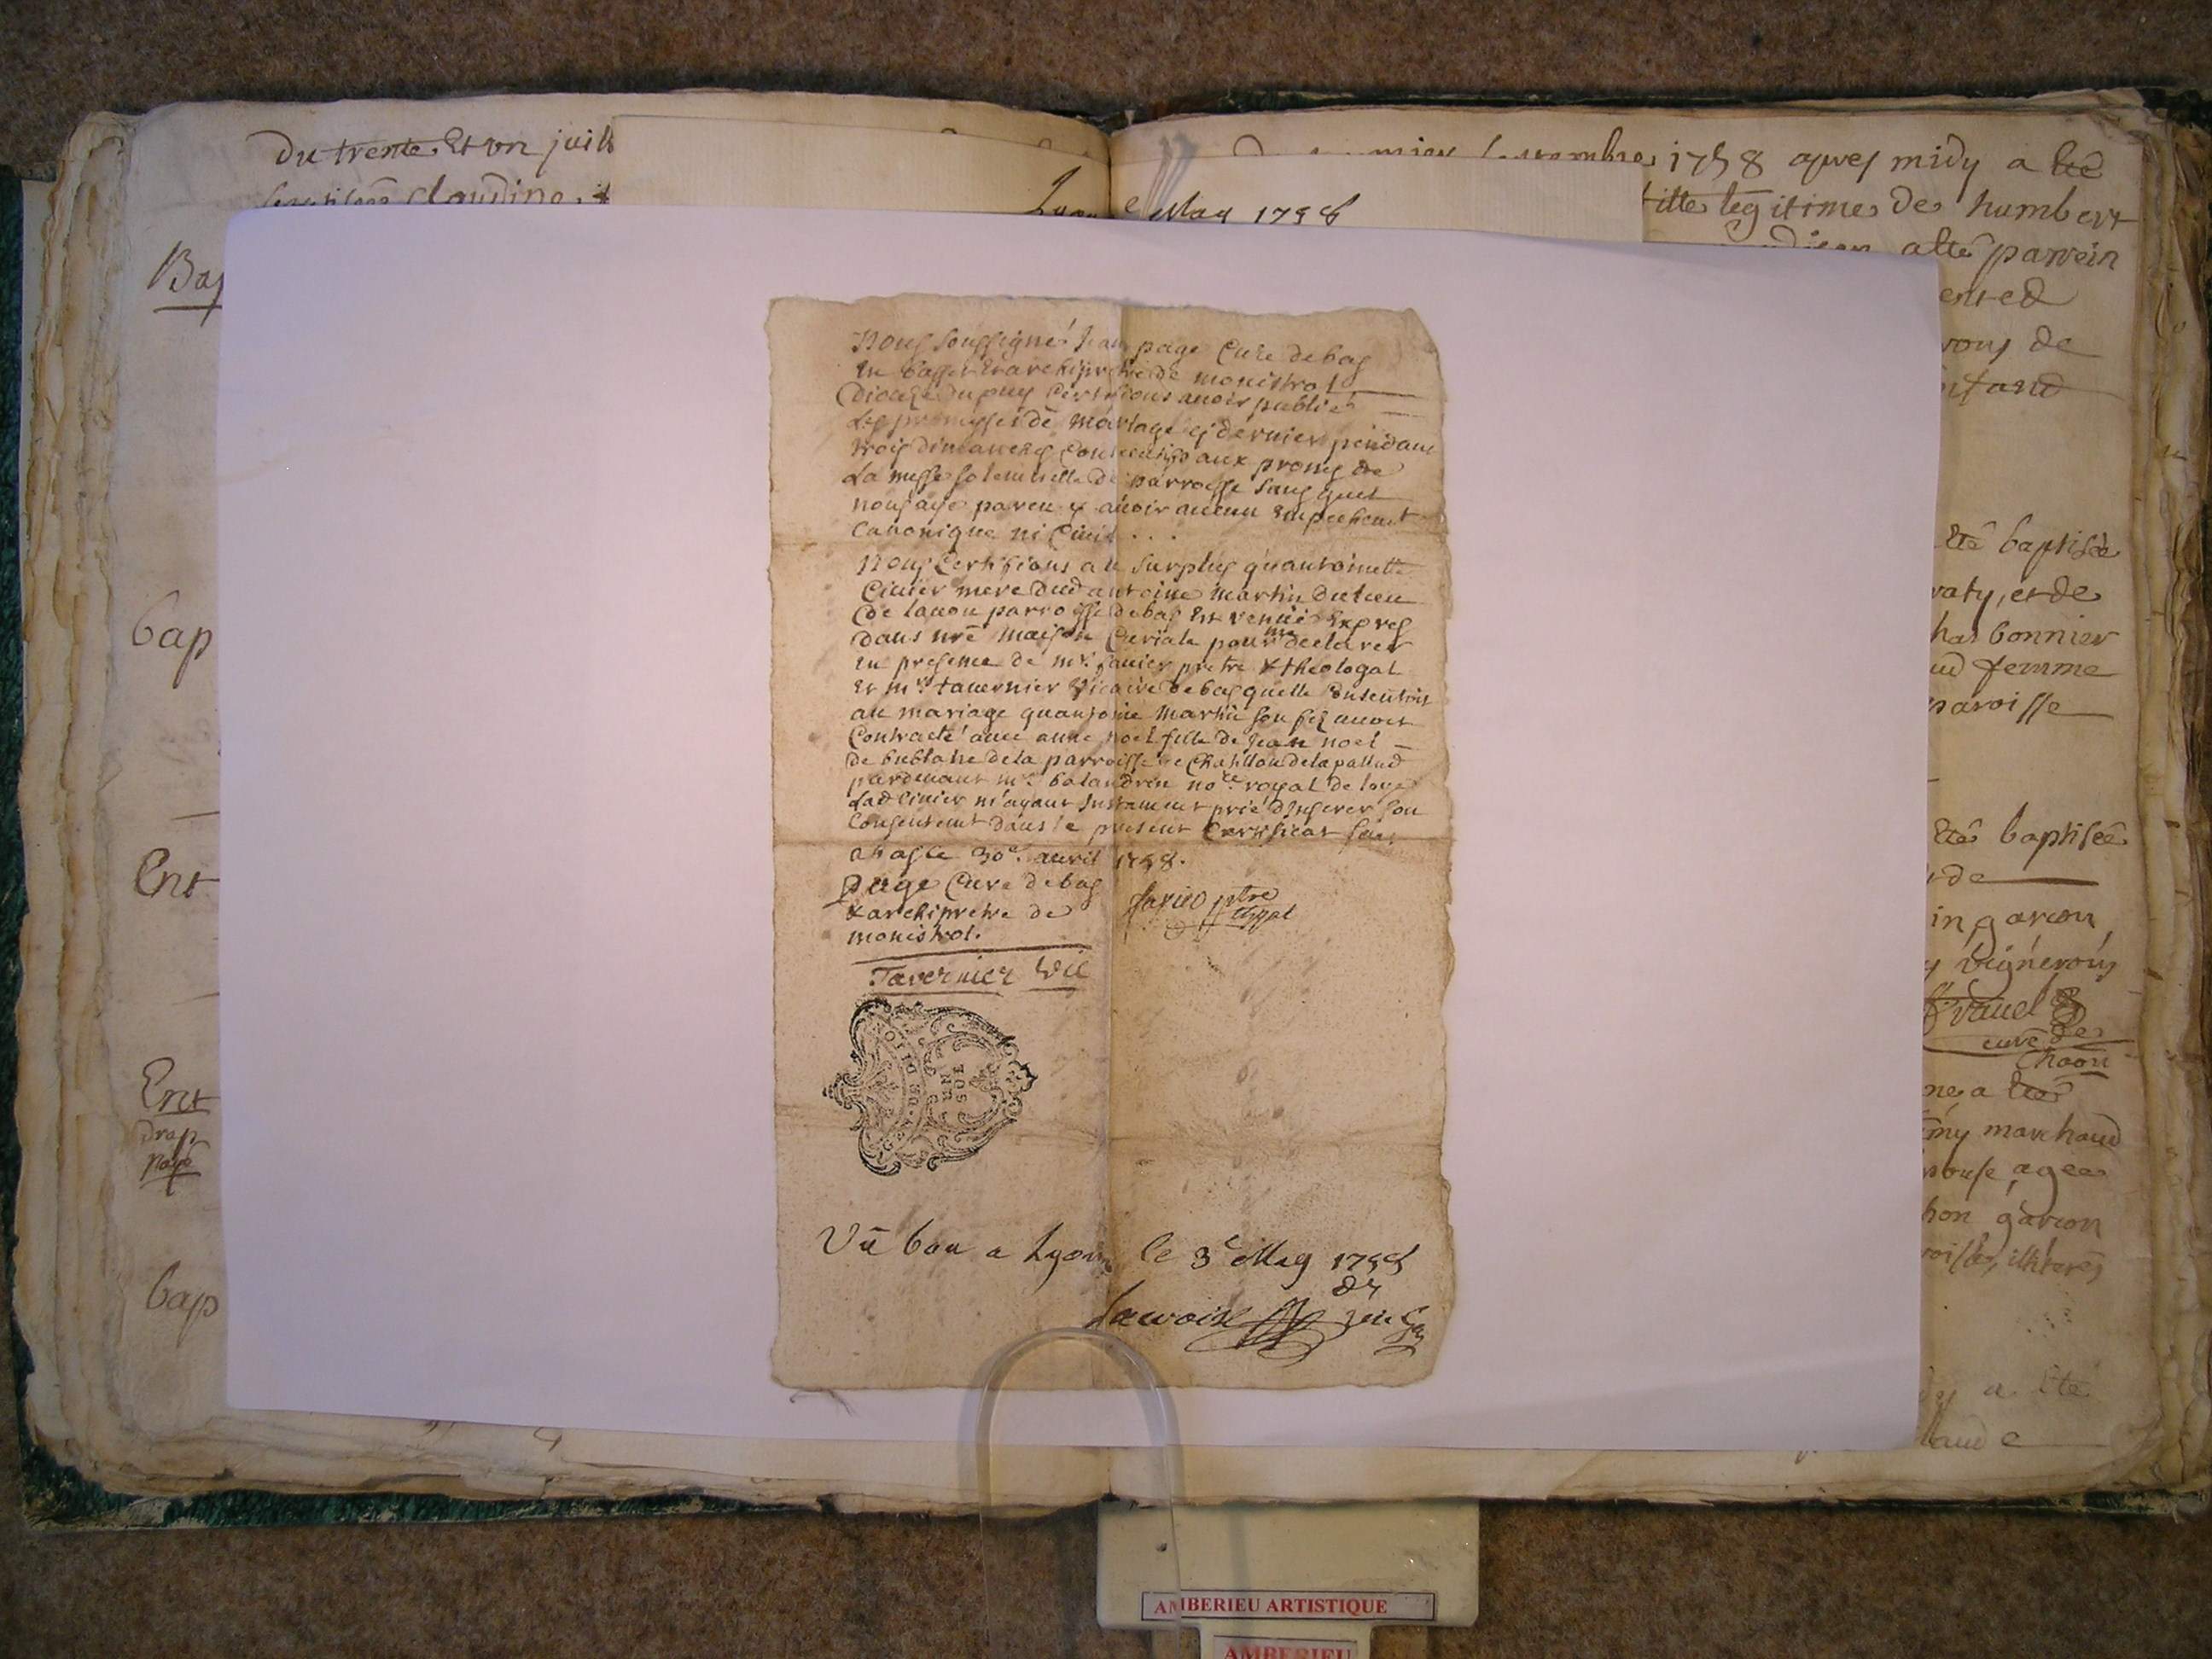 Du trente Et un juill
Claudine
Bap
bap
Ent
Ent
Drap
payé
bap
Lyon
e May 1758
1758 apres midy a êté
fille legitime de humbert
a êté parrein
vous de
êté baptisée
raty, et de
charbonnier
femme
paroisse
êté baptisée
de
in garcon
vignerons
curé de
Chaon
ne a êté
my marchand
epouse, agee
hon garcon
illiterés
a êté
laude
Nous soussigné Jean page Curé de bas
en basset et archiprêtre de monistrol
Dioceze du puy Certifions avoir publié
Les promesses de mariage cy dernier pendant
trois dimanches Consecutifs aux prones de
La messe solemnelle de parroisse sans quil
nous aye pareu y avoir aucun Empechemt
Canonique ni Civil . . .
Nous Certifions au surplus quantoinette
Cinier mere dud antoine martin du lieu
de lavou parroisse de bas Est venue Expres
dans nre maison Curiale pour me declarer
en presence de mr. savier pretre & theologal
Et mr. tavernier Vicaire de bas quelle Consentoit
au mariage quantoine martin son fils avoit
Contracté avec anne noel fille de Jean noel
de bublane de la parroisse de Chatillon de la pallud
pardevant mr. balandrin nore royal de loye
Lad Cinier m'ayant Instament prié d'Inserer son
Consentemt dans le present Certificat fait
a bas le 30e. avril 1758.
page Curé de bas
& archiprêtre de
monistrol.
ptre
Tavernier Vic
Vû bon a Lyon le 3e May 1758
Lacroix
AMBERIEU ARTISTIQUE
AMBERIEU